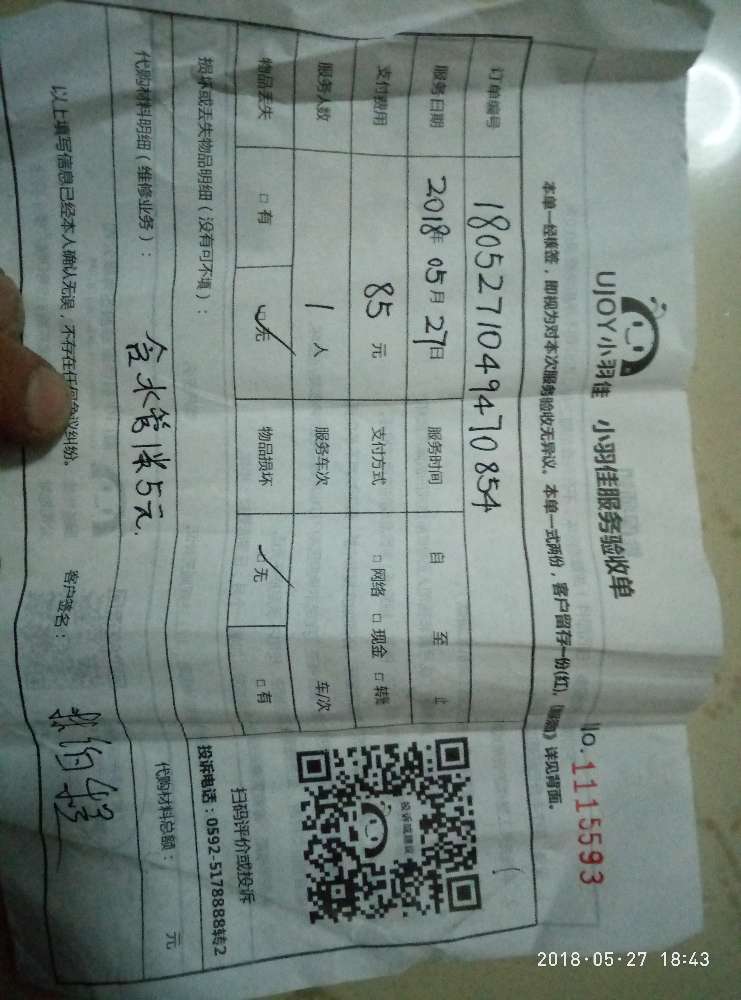 UJOY小羽佳 小羽佳服务验收单
No.1115593
本单一经核签，即视为对本次服务验收无异议。本单一式两份，客户留存一份(红)，详见背面。
订单编号 180527104947０854
服务日期 2018年 05月 27日 服务时间 自 至 止
支付费用 85 元 支付方式 □网络 □现金 □转账
服务人数 1 人 服务车次 车/次
物品丢失 □有 ☑无 物品损坏 ☑无 □有
损坏或丢失物品明细（没有可不填）：
投诉或建议
扫码评价或投诉
投诉电话：0592-5178888转2
代购材料明细（维修业务）： 含水管1米5元. 代购材料总额： 元
以上填写信息已经本人确认无误，不存在任何争议纠纷。 客户签名：
2018-05-27 18:43